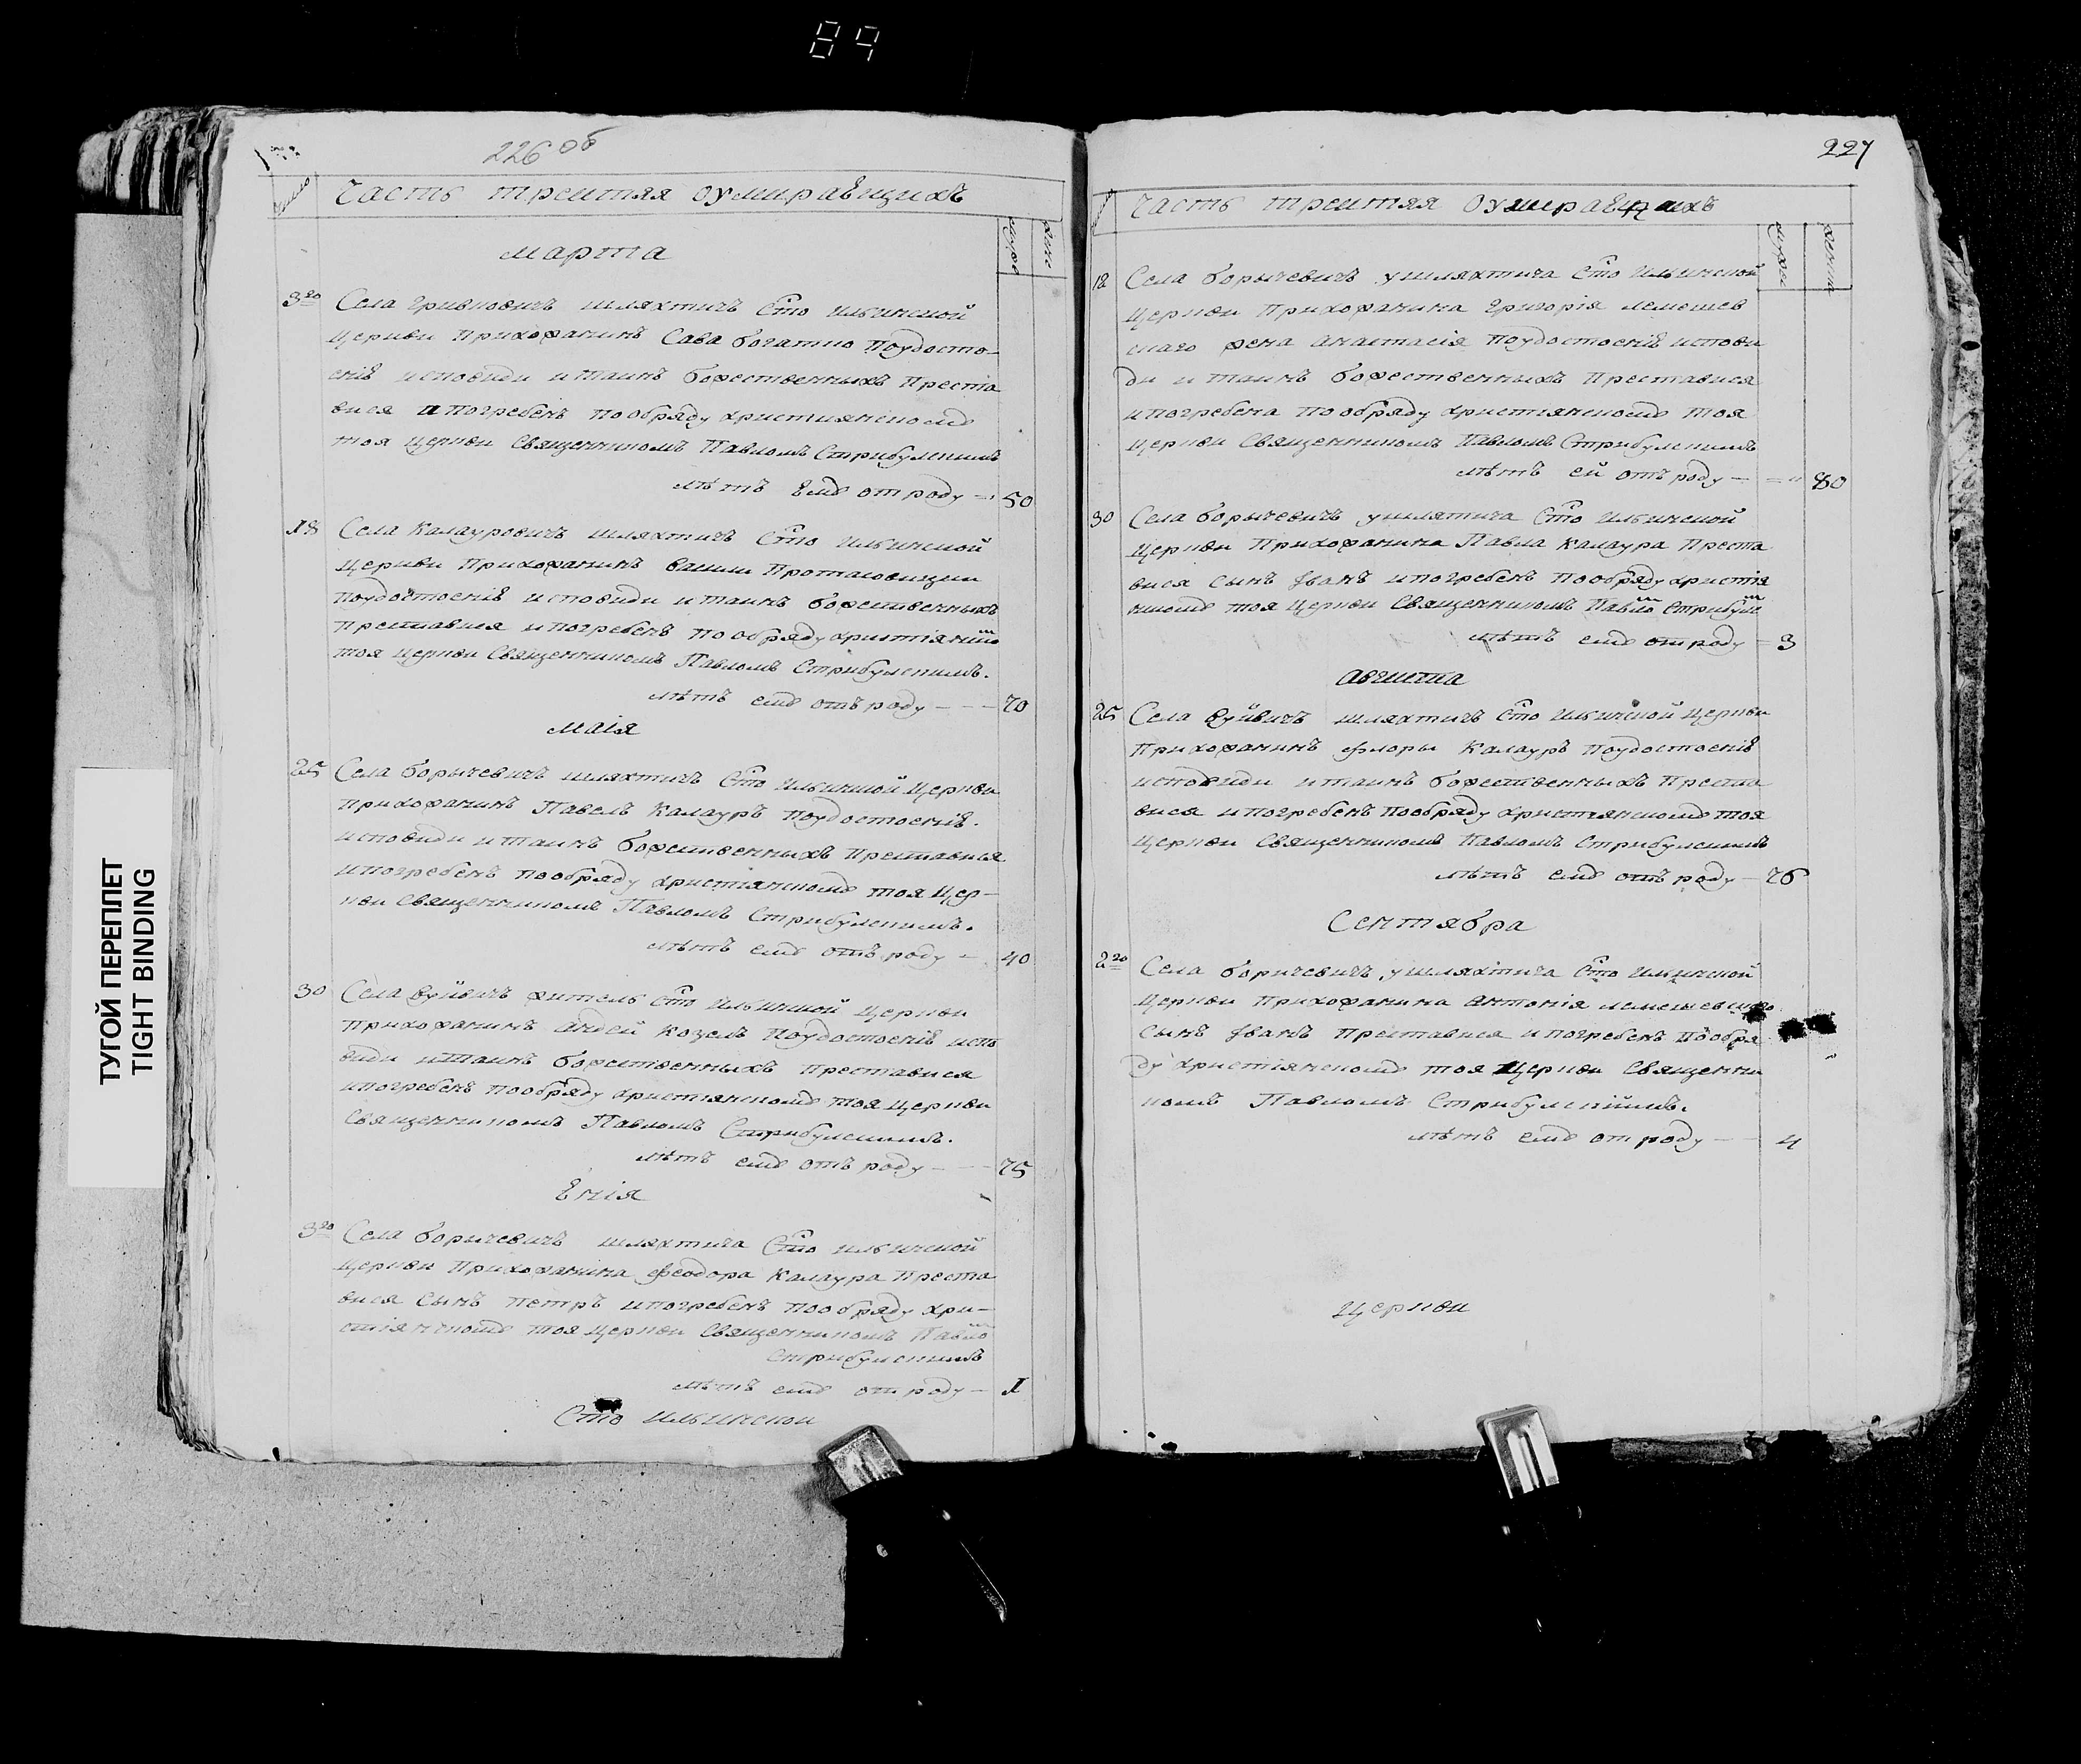 89
226 об
число
Часть третяя оумиравщихъ
муже
жене
марта
3го Села Гривковичъ шляхтичъ Сто Ильинской
Церкви Прихожанинъ Сава богатко Поудосто-
енiѣ исповиди и таинъ божественныхъ Преста
вися и погребенъ пообряду християнскоме
тоя Церкви Священникомъ Павломъ Стрибулскимъ
лѣтъ Емѣ от роду 50
18 Села Калауровичъ шляхтичъ Сто Ильинской
Церкви Прихожанинъ васили Протасовицки
Поудостоенiѣ исповиди и таинъ божественныхъ
Преставися и погребенъ пообряду христiян
тоя Церкви Священникомъ Павломъ Стрибулскимъ.
лѣтъ емѣ отъ роду - - - 70
Маiя
25 Села борычевичъ шляхтичъ Сто Ильинской Церкви
Прихожанинъ Павелъ Калауръ Поудостоенiѣ.
исповиди и таинъ божественныхъ Преставися
и погребенъ пообряду христiянскомѣ тоя Цер-
кви Священникомъ Павломъ Стрибулскимъ.
лѣтъ емѣ отъ роду - 40
30 Села вуйвичъ житель Сто Ильинской Церкви
Прихожанинъ андей Козелъ Поудостоенiѣ испо
види и таинъ божественныхъ преставися
и погребенъ пообряду христiянскомѣ тоя Церкви
Священникомъ Павломъ Стрибулскимъ.
лѣтъ емѣ отъ роду - - - 75
Енiя
3го Села борычевичъ шляхтича Сто Ильинской
Церкви Прихожанина феодора Калаура Преста
вися Сынъ петръ и погребенъ пообряду хри-
стiянскомѣ тоя Церкви Священникомъ Павло
Стрибулскимъ
лѣтъ емѣ от роду - 1
Сто Ильинской
227
Часть третяя оумиравщихъ
муже
жене
12 Села борычевичъ у шляхтича Сто Ильинской
Церкви Прихожанина Григорiя лемешев
скаго жена анастасiя Поудостоенiѣ испови
ди и таинъ божественныхъ Преставися
и погребена пообряду христiянскомѣ тоя
Церкви Священникомъ Павломъ Стрибулскимъ
лѣтъ ей отъ роду - 80
30 Села борычевичъ у шлятича Сто Ильинской
Церкви Прихожанина Павла Калаура Преста
вися сынъ Iванъ и погребенъ пообряду христiя
нкомѣ тоя Церкви Священникомъ Павло Стрибул
лѣтъ емѣ от роду - 3
Августа
25 Села вуйвичъ шляхтичъ Сто Ильинской Церкви
Прихожанинъ флоры Калауръ Поудостоенiѣ
исповиди и таинъ божественныхъ Преста
вися и погребенъ пообряду христiянскомѣ тоя
Церкви Священникомъ Павломъ Стрибулскимъ
лѣтъ емѣ отъ роду - 76
Сентября
2го Села боричевичъ у шляхтича Сто Ильинской
Церкви прихожанина антонiя лемешевскаго
Сынъ Iванъ преставися и погребенъ пообря
ду христiянскомѣ тоя Церкви Священни
комъ Павломъ Стрибулскiимъ.
лѣтъ емѣ от роду - - 4
Церкви
ТУГОЙ ПЕРЕПЛЕТ
TIGHT BINDING